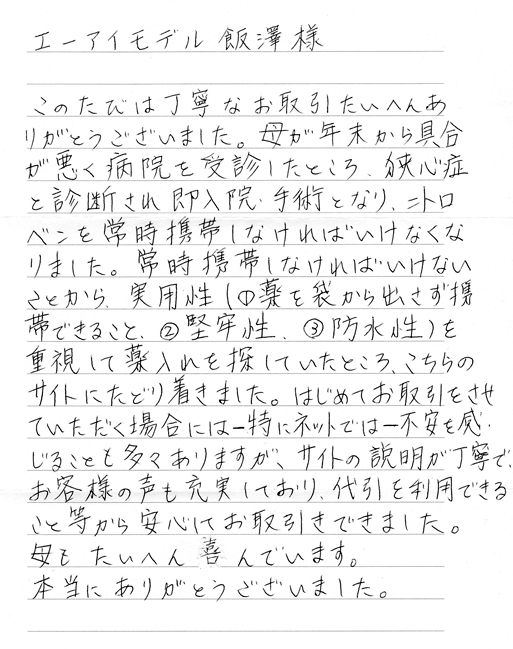 エーアイモデル 飯澤様
このたびは丁寧なお取引たいへんあ
りがとうございました。母が年末から具合
が悪く病院を受診したところ、狭心症
と診断され即入院・手術となり、ニトロ
ペンを常時携帯しなければいけなくな
りました。常時携帯しなければいけない
ことから、実用性(①薬を袋から出さず携
帯できること、②堅牢性、③防水性)を
重視して薬入れを探していたところ、こちらの
サイトにたどり着きました。はじめてお取引をさせ
ていただく場合には−特にネットでは−不安を感
じることも多々ありますが、サイトの説明が丁寧で、
お客様の声も充実しており、代引を利用できる
こと等から安心してお取引きできました。
母も たいへん 喜んでいます。
本当にありがとうございました。